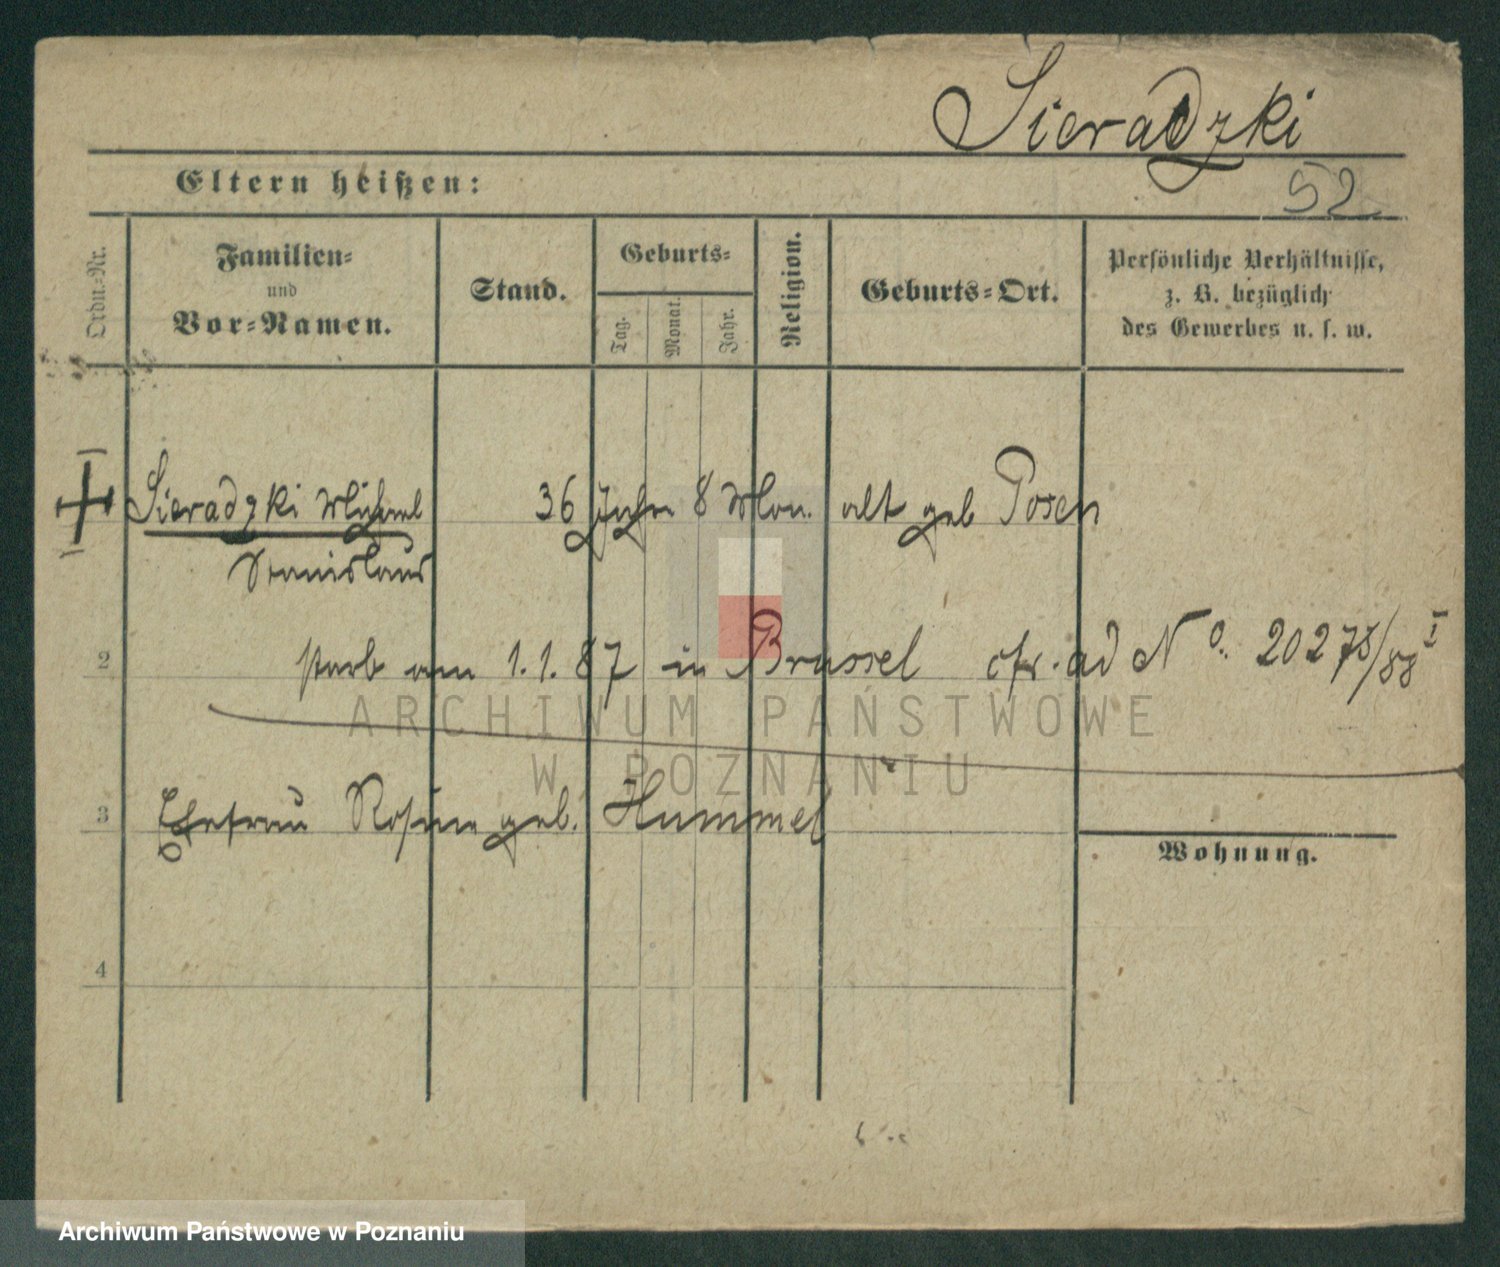 Sieradzki
Eltern heißen:
52
Ordn.-Nr.
Familien-
und
Vor-Namen.
Stand.
Geburts-
Tag.
Monat.
Jahr.
Religion.
Geburts-Ort.
Persönliche Verhältnisse,
z. B. bezüglich
des Gewerbes u. s. w.
Sieradzki Michael 36 Jahre 8 Mon. alt geb Posen
Stanislaus
2 starb am 1.1.87 in Brussel cfr. ad No. 20275/88 I
ARCHIWUM PAŃSTWOWE
W POZNANIU
3 Ehefrau Rosina geb. Hummel
Wohnung.
4
Archiwum Państwowe w Poznaniu